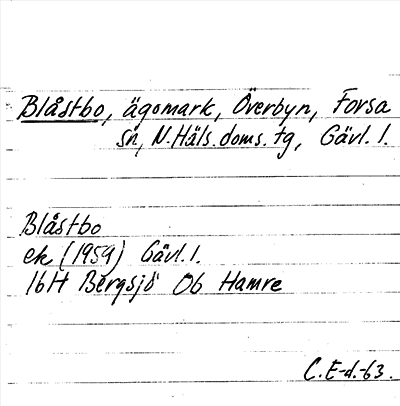 Blåstbo, ägomark, Överbyn, Forsa
sn, N.Häls.doms.tg, Gävl.l.
Blåstbo
ek (1959) Gävl.l.
16H Bergsjö Ob Hamre
C.E-d.-63.